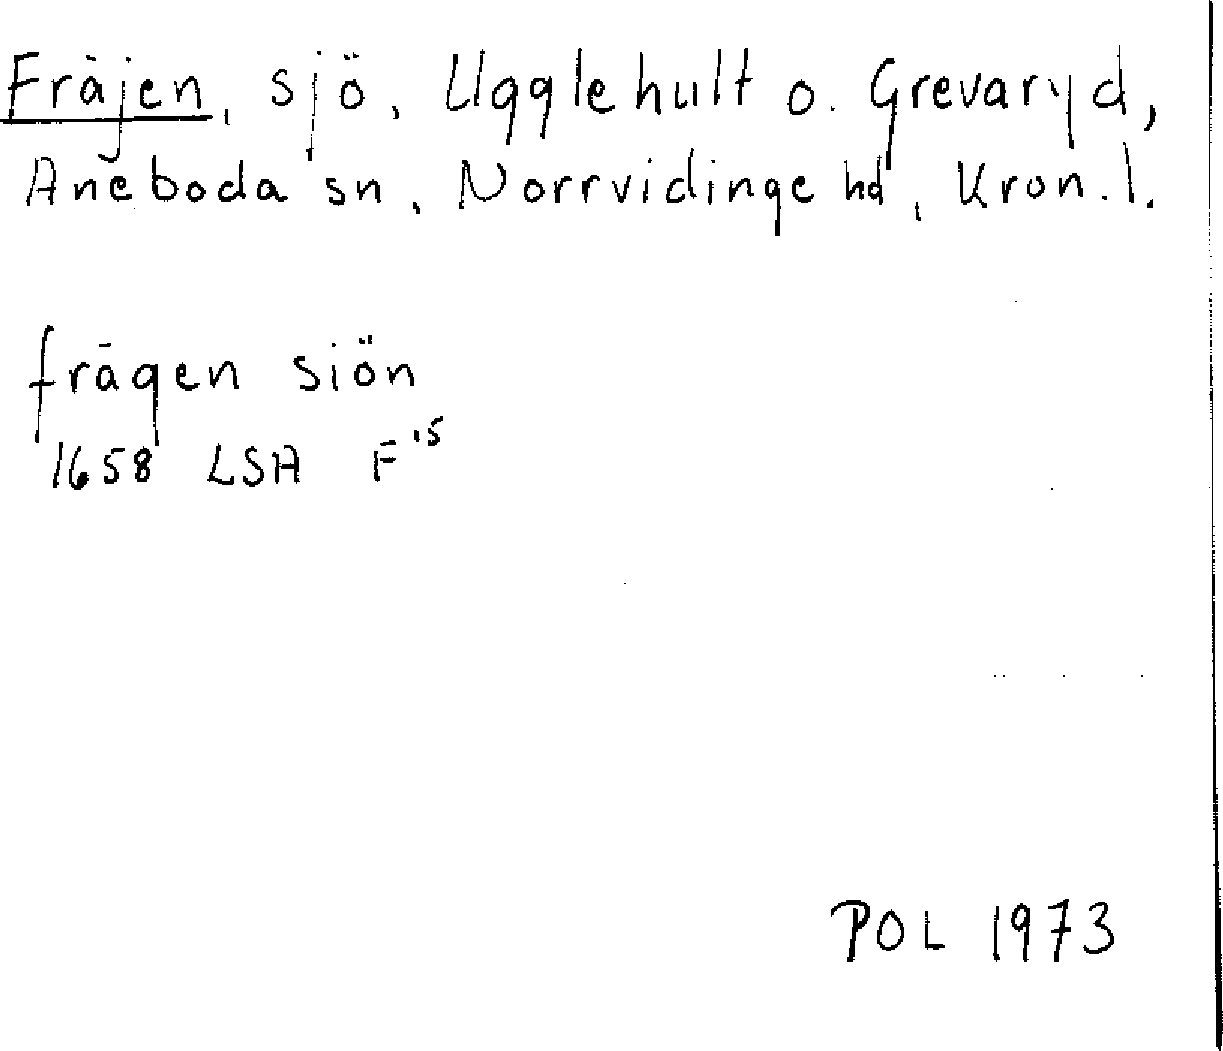 Fräjen, sjö, Ugglehult o. Grevaryd,
Aneboda sn, Norrvidinge hd, Kron. l.
frägen siön
1658 LSA F 15
POL 1973